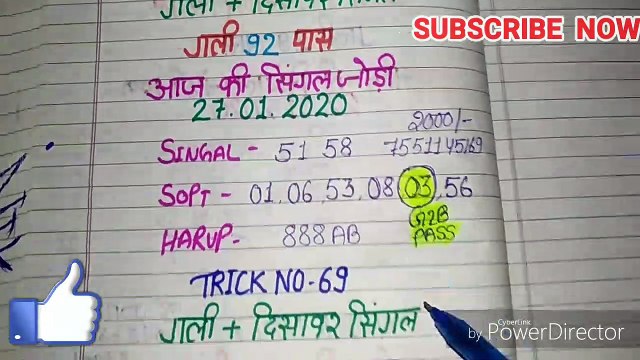 गली + दिसावर सिंगल
SUBSCRIBE NOW
गली 92 पास
आज की सिंगल जोड़ी
27.01.2020
2000/-
SINGAL - 51 58 7551145769
SOPT - 01, 06, 53, 08, 03, 56
HARUP - 888 AB
PASS
TRICK NO-69
गली + दिसावर सिंगल
CyberLink
by PowerDirector